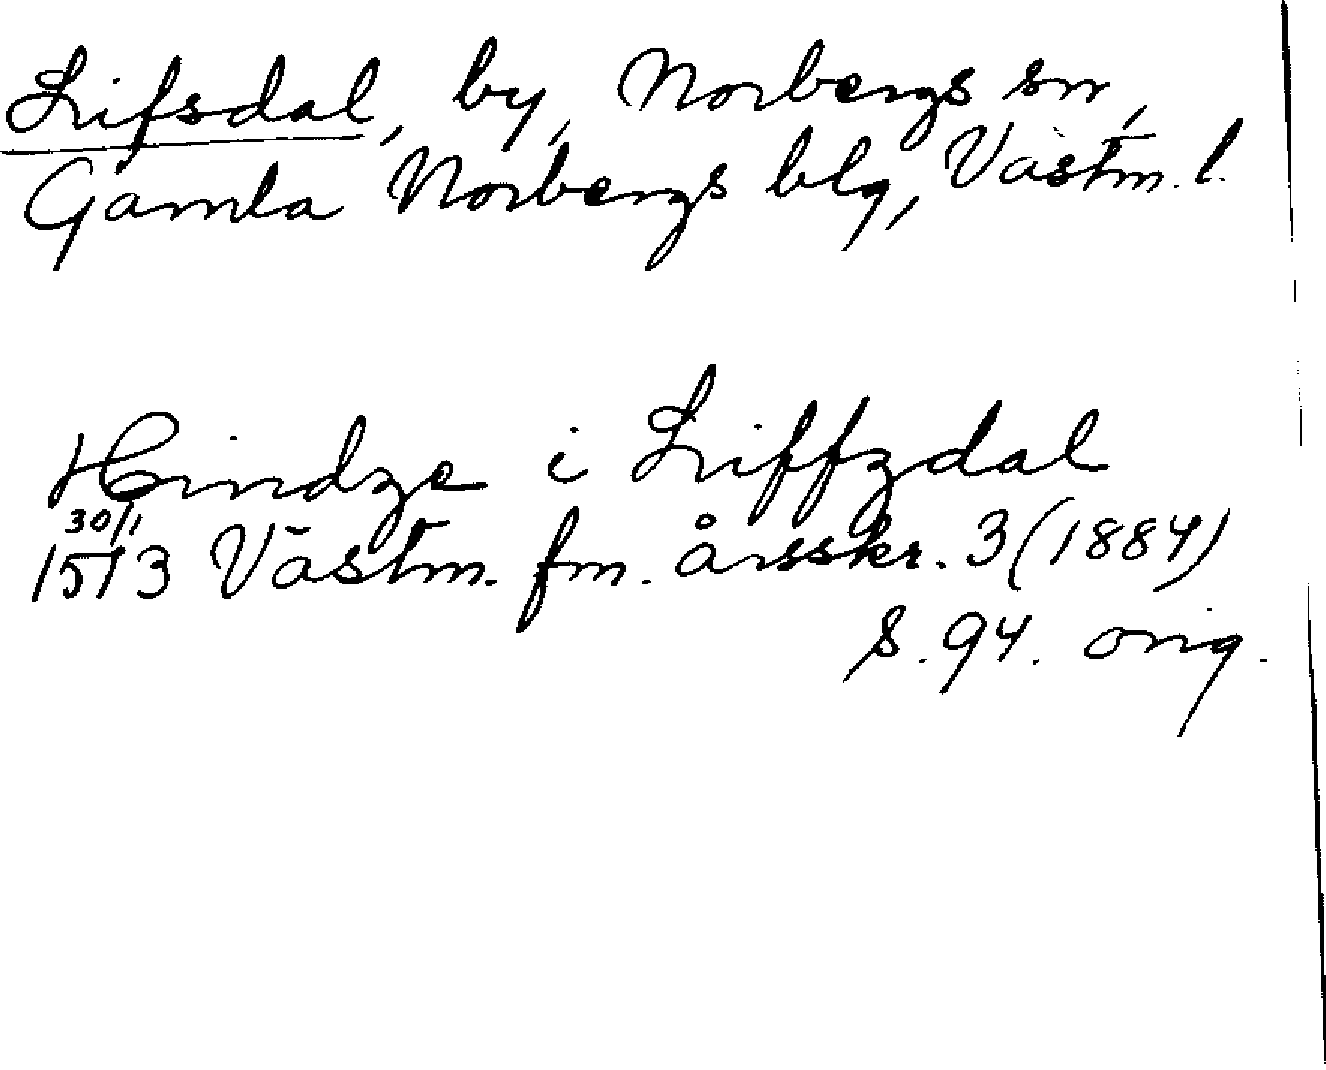 Lifsdal, by, Norbergs sn,
Gamla Norbergs blg, Västm. l.
Hindze i Liffzdal
30/1
1513 Västm. fm. årsskr. 3 (1884)
s. 94. orig.